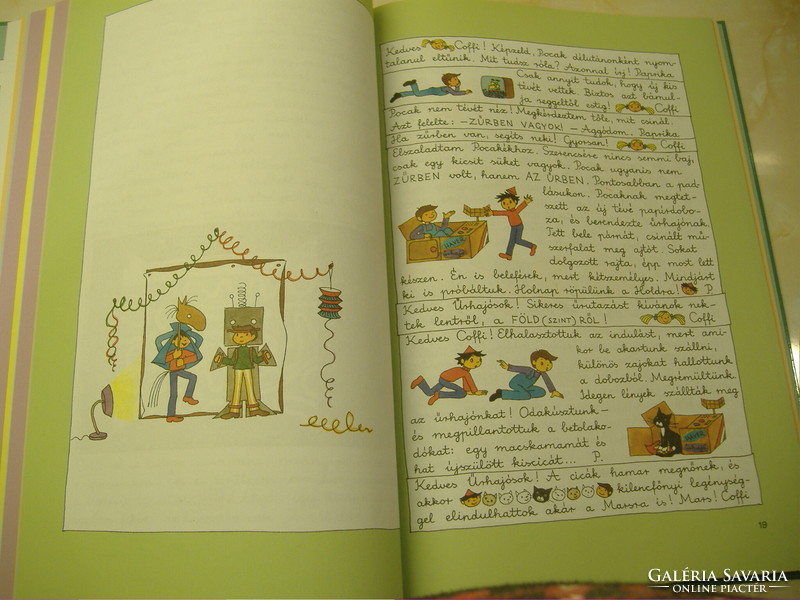 Kedves Coffi! Képzeld, Pocak délutánonként nyom-
talanul eltűnik. Mit tudsz róla? Azonnal írj! Paprika
Csak annyit tudok, hogy új ké-
tévét vettek. Biztos azt bámul-
ja reggeltől estig! Coffi
Pocak nem tévét néz! Megkérdeztem tőle, mit csinál.
Azt felelte: —ZŰRBEN VAGYOK! — Aggódom. Paprika
Ha zűrben van, segíts neki! Gyorsan! Coffi
Elszaladtam Pocakékhoz. Szerencsére nincs semmi baj,
csak egy kicsit süket vagyok. Pocak ugyanis nem
ZŰRBEN volt, hanem AZ ŰRBEN. Pontosabban a pad-
lásukon. Pocaknak megtet-
szett az új tévé papírdobo-
za, és berendezte űrhajónak.
Tett bele párnát, csinált mű-
szerfalat meg ajtót. Sokat
dolgozott rajta, épp most lett
készen. Én is beleférek, mert kétszemélyes. Mindjárt
ki is próbáltuk. Holnap röpülünk a Holdra! P.
Kedves Űrhajósok! Sikeres űrutazást kívánok nek-
tek lentről, a FÖLD(SZINT)RŐL! Coffi
Kedves Coffi! Elhalasztottuk az indulást, mert ami-
kor be akartunk szállni,
különös zajokat hallottunk
a dobozból. Megrémültünk.
Idegen lények szállták meg
az űrhajónkat! Odakúsztunk—
és megpillantottuk a betolako-
dókat: egy macskamamát és
hat újszülött kiscicát... P.
Kedves Űrhajósok! A cicák hamar megnőnek, és
akkor kilencfőnyi legénység-
gel elindulhattok akár a Marsra is! Mars! Coffi
19
GALÉRIA SAVARIA
ONLINE PIACTÉR